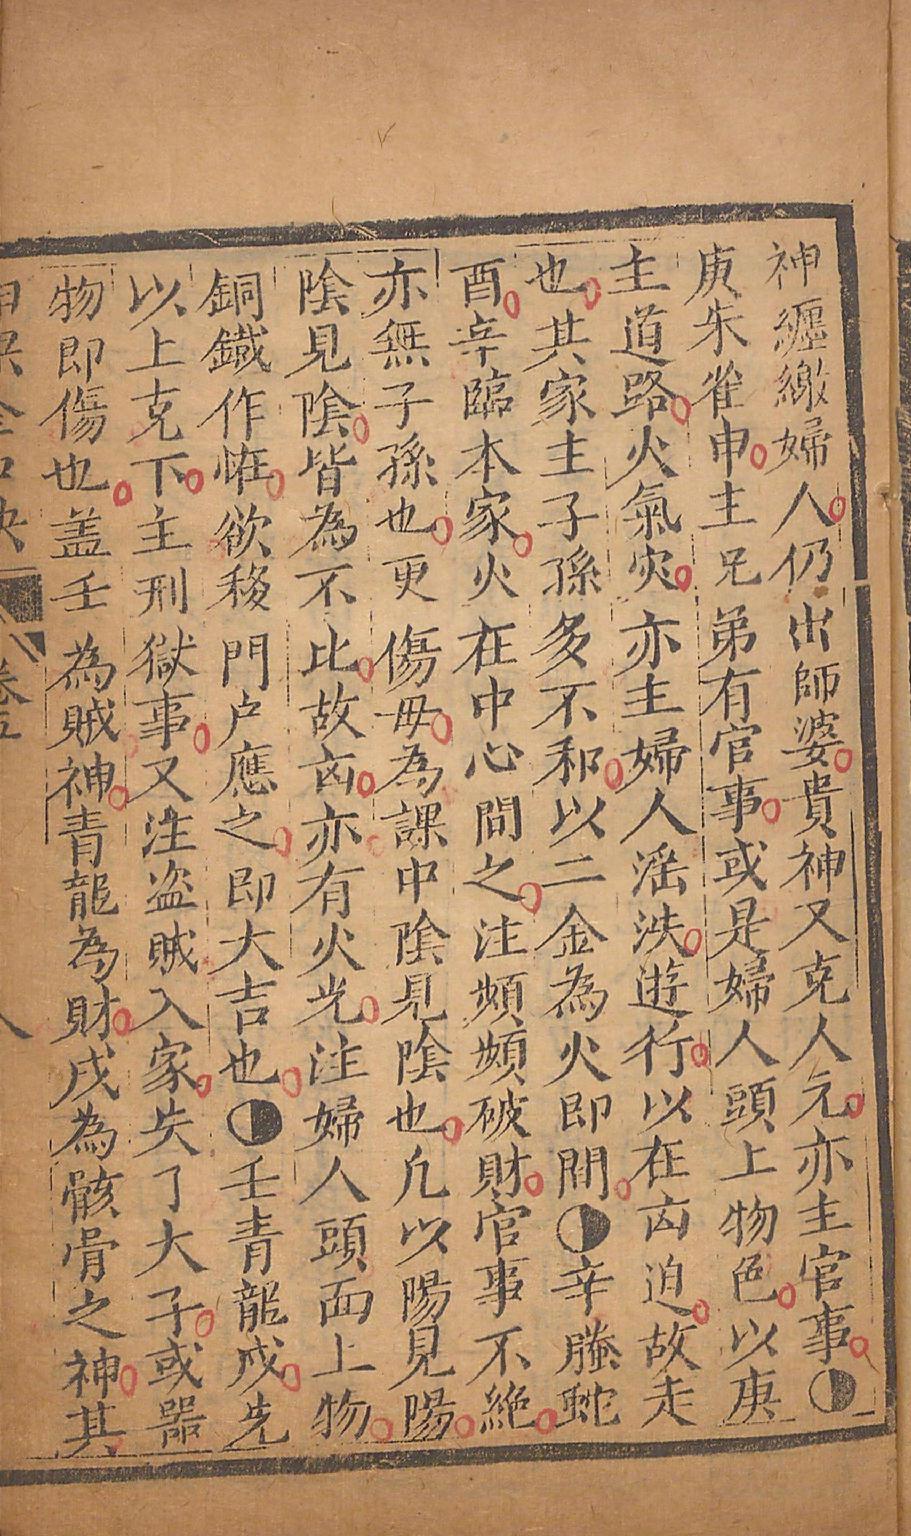 神纏繳婦人仍出師婆貴神又克人元亦主官事◐
庚朱雀申主兄弟有官事或是婦人頭上物色以庚
主道路火氣灾亦主婦人滛泆遊行以在凶迫故走
也其家主子孫多不和以二金為火即間◐辛螣蛇
酉辛臨本家火在中心間之注頻頻破財官事不絶
亦無子孫也更傷毋為課中隂見隂也凢以陽見陽
隂見隂皆為不比故凶亦有火光注婦人頭面上物
銅鐵作恠欲移門户應之即大吉也◐壬青龍戌先
以上克下主刑獄事又注盗賊入家失了大子或器
物即傷也盖壬為賊神青龍為財戌為骸骨之神其
卷五